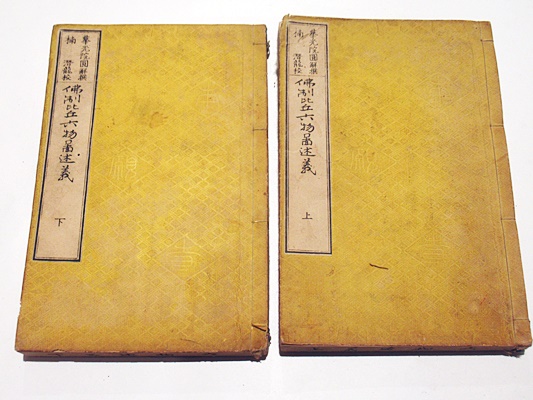 華先院圓解撰
楠 潜龍校
佛制比丘六物圖述義
上
華先院圓解撰
楠 潜龍校
佛制比丘六物圖述義
下